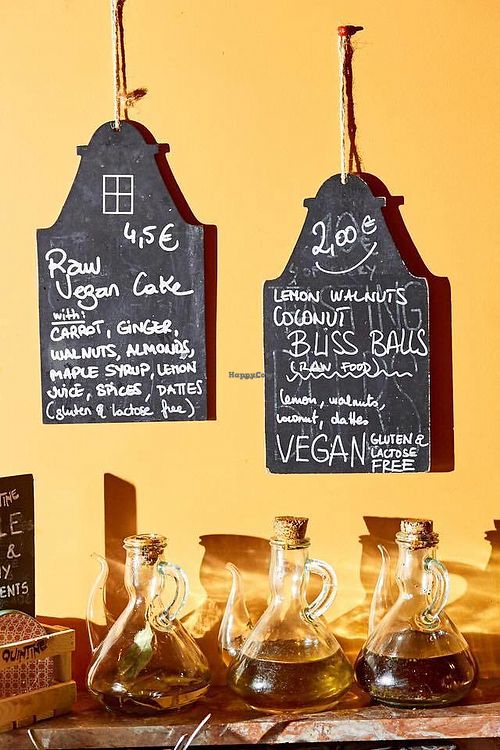 4,5€
Raw
Vegan Cake
with:
CARROT, GINGER,
WALNUTS, ALMONDS,
MAPLE SYRUP, LEMON
JUICE, SPICES, DATTES
(gluten & lactose free)
2,00€
LEMON WALNUTS
COCONUT
BLISS BALLS
(RAW FOOD)
lemon, walnuts,
coconut, dattes
VEGAN GLUTEN &
LACTOSE
FREE
HappyCow
QUINTINE